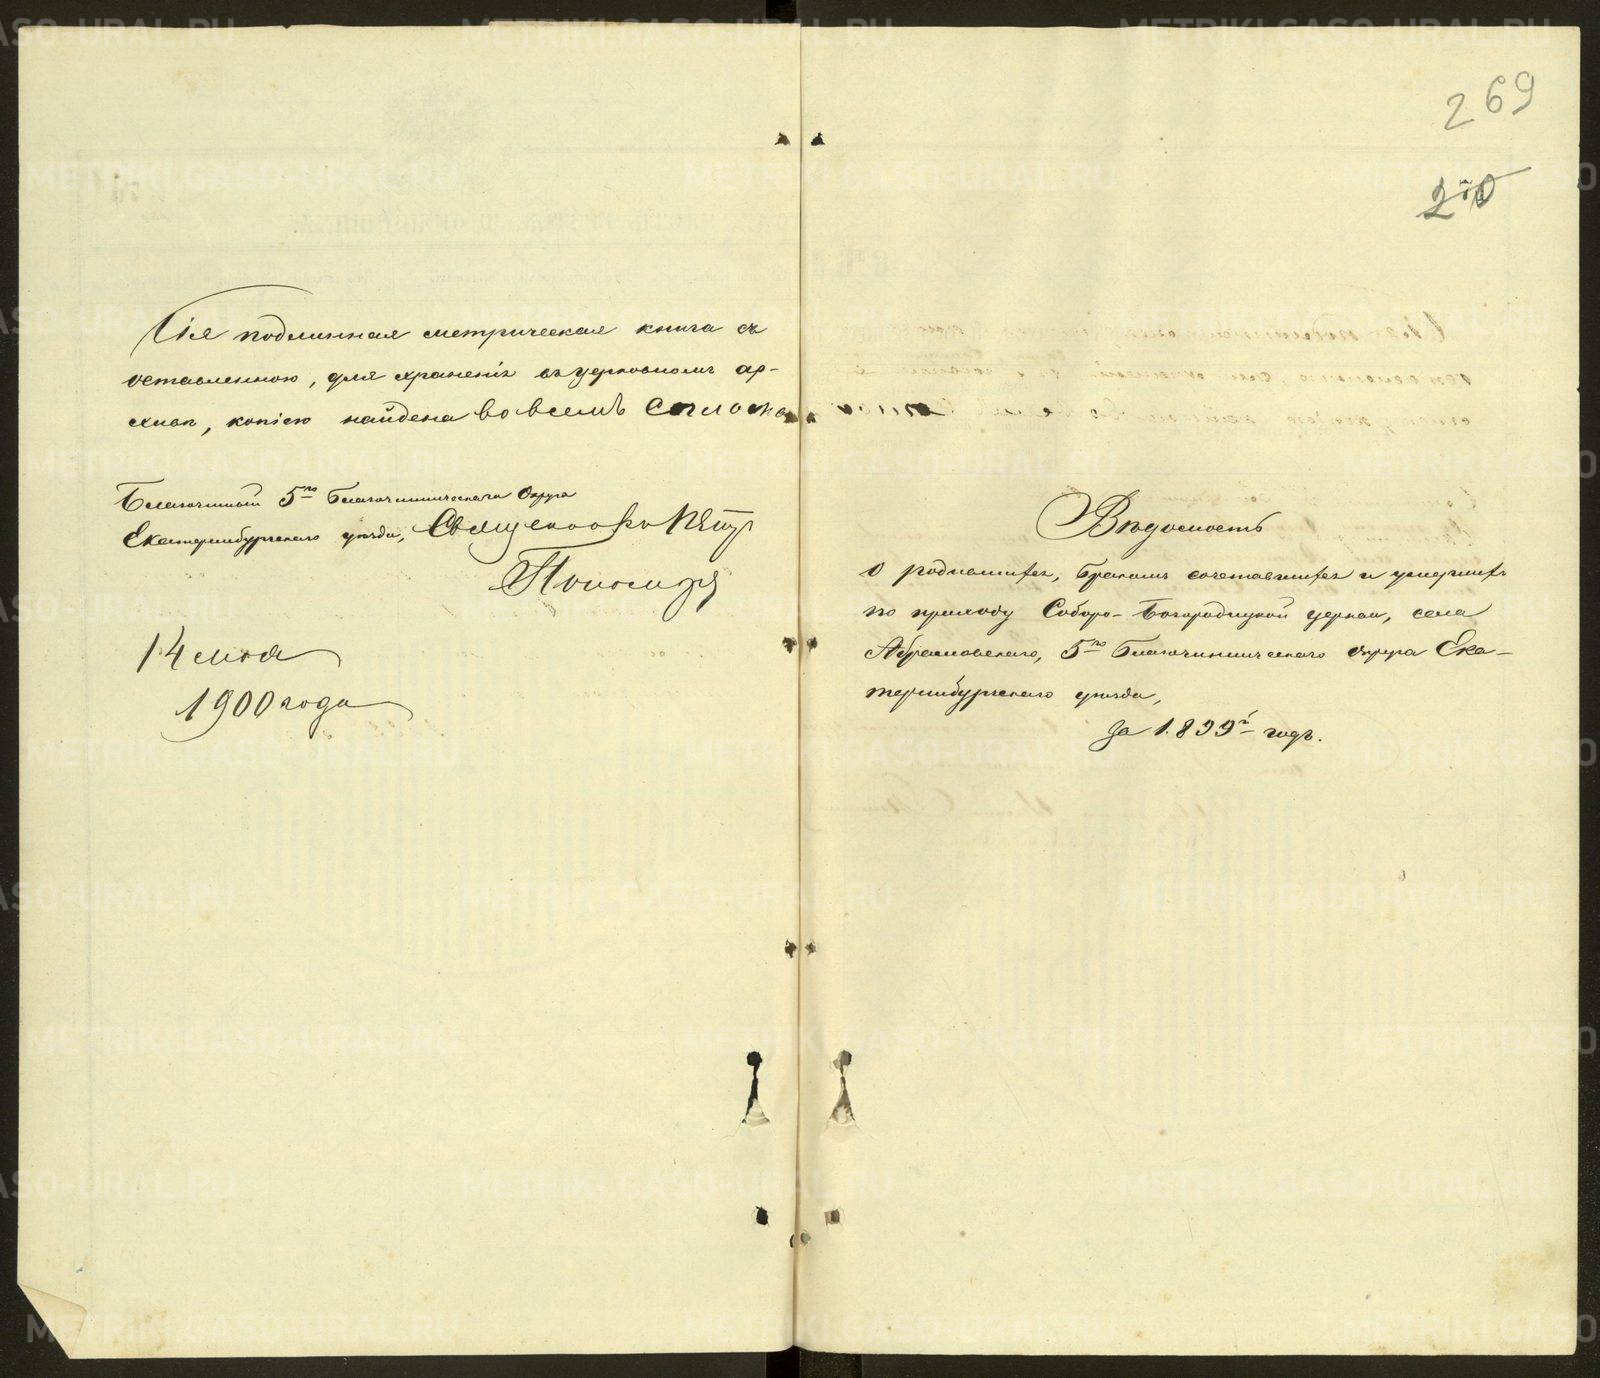 Сія подлинная метрическая книга съ
оставленною, для храненія въ церковномъ ар-
хивѣ, копіею найдена во всемъ согласна
Благочинный 5го Благочинническаго Округа
Екатеринбургскаго уѣзда, Священникъ Петр
Пономарев
14 мая
1900 года
269
270
Вѣдомость
о родившихся, бракомъ сочетавшихся и умершихъ
по приходу Соборо-Богородицкой церкви, села
Абрамовскаго, 5го Благочинническаго округа Ека-
теринбургскаго уѣзда,
за 1899й годъ.
METRIKI.GASO-URAL.RU